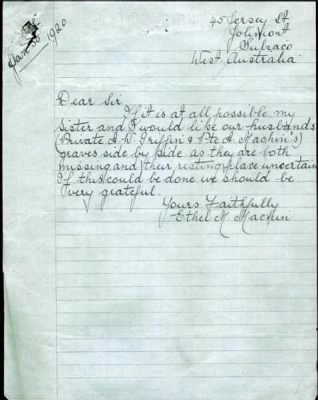 Jan 30 1920
45 Jersey St
Jolimont
Subiaco
West Australia
Dear Sir
If it is at all possible my
sister and I would like our husbands
(Private A. W. Griffin & Pte A. Machin's)
graves side by side as they are both
missing and their resting place uncertain
If this could be done we should be
very grateful.
Yours Faithfully
Ethel M. Machin